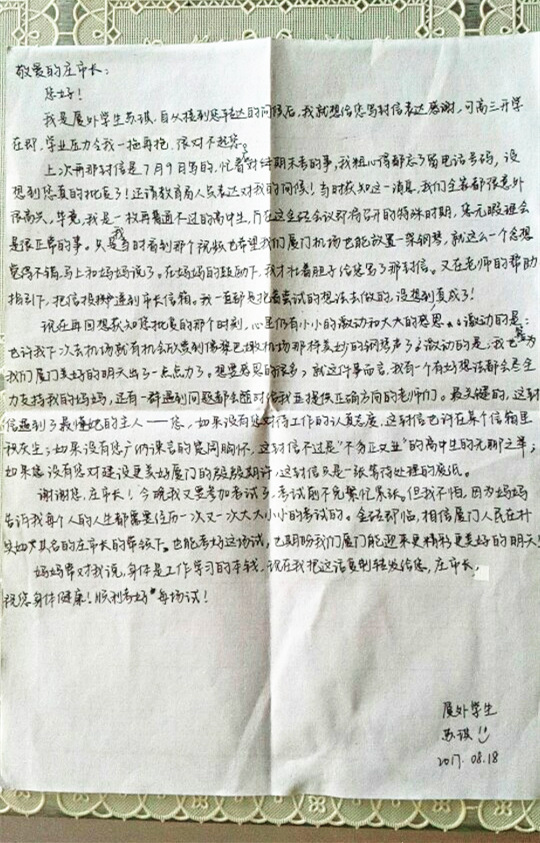 敬爱的庄市长：
您好！
我是厦外学生苏琪，自从接到您转达的问候后，我就想给您写封信表达感谢，可高三开学
在即，学业压力令我一拖再拖，很对不起您。
上次那封信是7月9日写的，忙着对付期末考的事，我粗心得都忘了留电话号码，没
想到您真的批复了！还请教育局人员表达对我的问候！当时获知这一消息，我们全家都很意外
很高兴，毕竟，我是一枚再普通不过的高中生，厅在这金砖会议即将召开的特殊时期，您无暇理会
是很正常的事。只是我当时看到那个视频也希望我们厦门机场也能放置一架钢琴，就这么一个念想
觉得不错，马上和妈妈说了。在妈妈的鼓励下，我才壮着胆子给您写了那封信。又在老师的帮助
指引下，把信投递到市长信箱。我一直都是抱着尝试的想法去做的，没想到真成了！
现在再回想获知您批复的那个时刻，心里仍有小小的激动和大大的感恩。激动的是：
也许我下次去机场就有机会欣赏到像巴黎机场那样美妙的钢琴声了；激动的是：我也为
我们厦门美好的明天出了一点点力了。想要感恩的很多，就这件事而言，我有一个有好想法都会尽全
力支持我的妈妈，还有一群遇到问题都会随时给我正提供正确方向的老师们。最关键的，这封
信遇到了最懂她的主人——您，如果没有您对待工作的认真态度，这封信也许在某个信箱里
积灰尘；如果没有您广纳谏言的宽阔胸怀，这封信不过是“不务正业”的高中生的无聊之举；
如果您没有您对建设更美好厦门的殷殷期许，这封信只是一张等待处理的废纸。
谢谢您，庄市长！今晚我又要参加考试了，考试前不免紧忙紧张。但我不怕，因为妈妈
告诉我每个人的人生都需要经历一次又一次大大小小的考试的。金砖即临，相信厦门人民在朴
实如其名的庄市长的带领下，也能考好这场试，也期盼我们厦门能迎来更精彩更美好的明天！
妈妈常对我说，身体是工作学习的本钱，现在我把这话复制转发给您，庄市长，
祝您身体健康！顺利考好每场试！
厦外学生
苏琪
2017.08.18